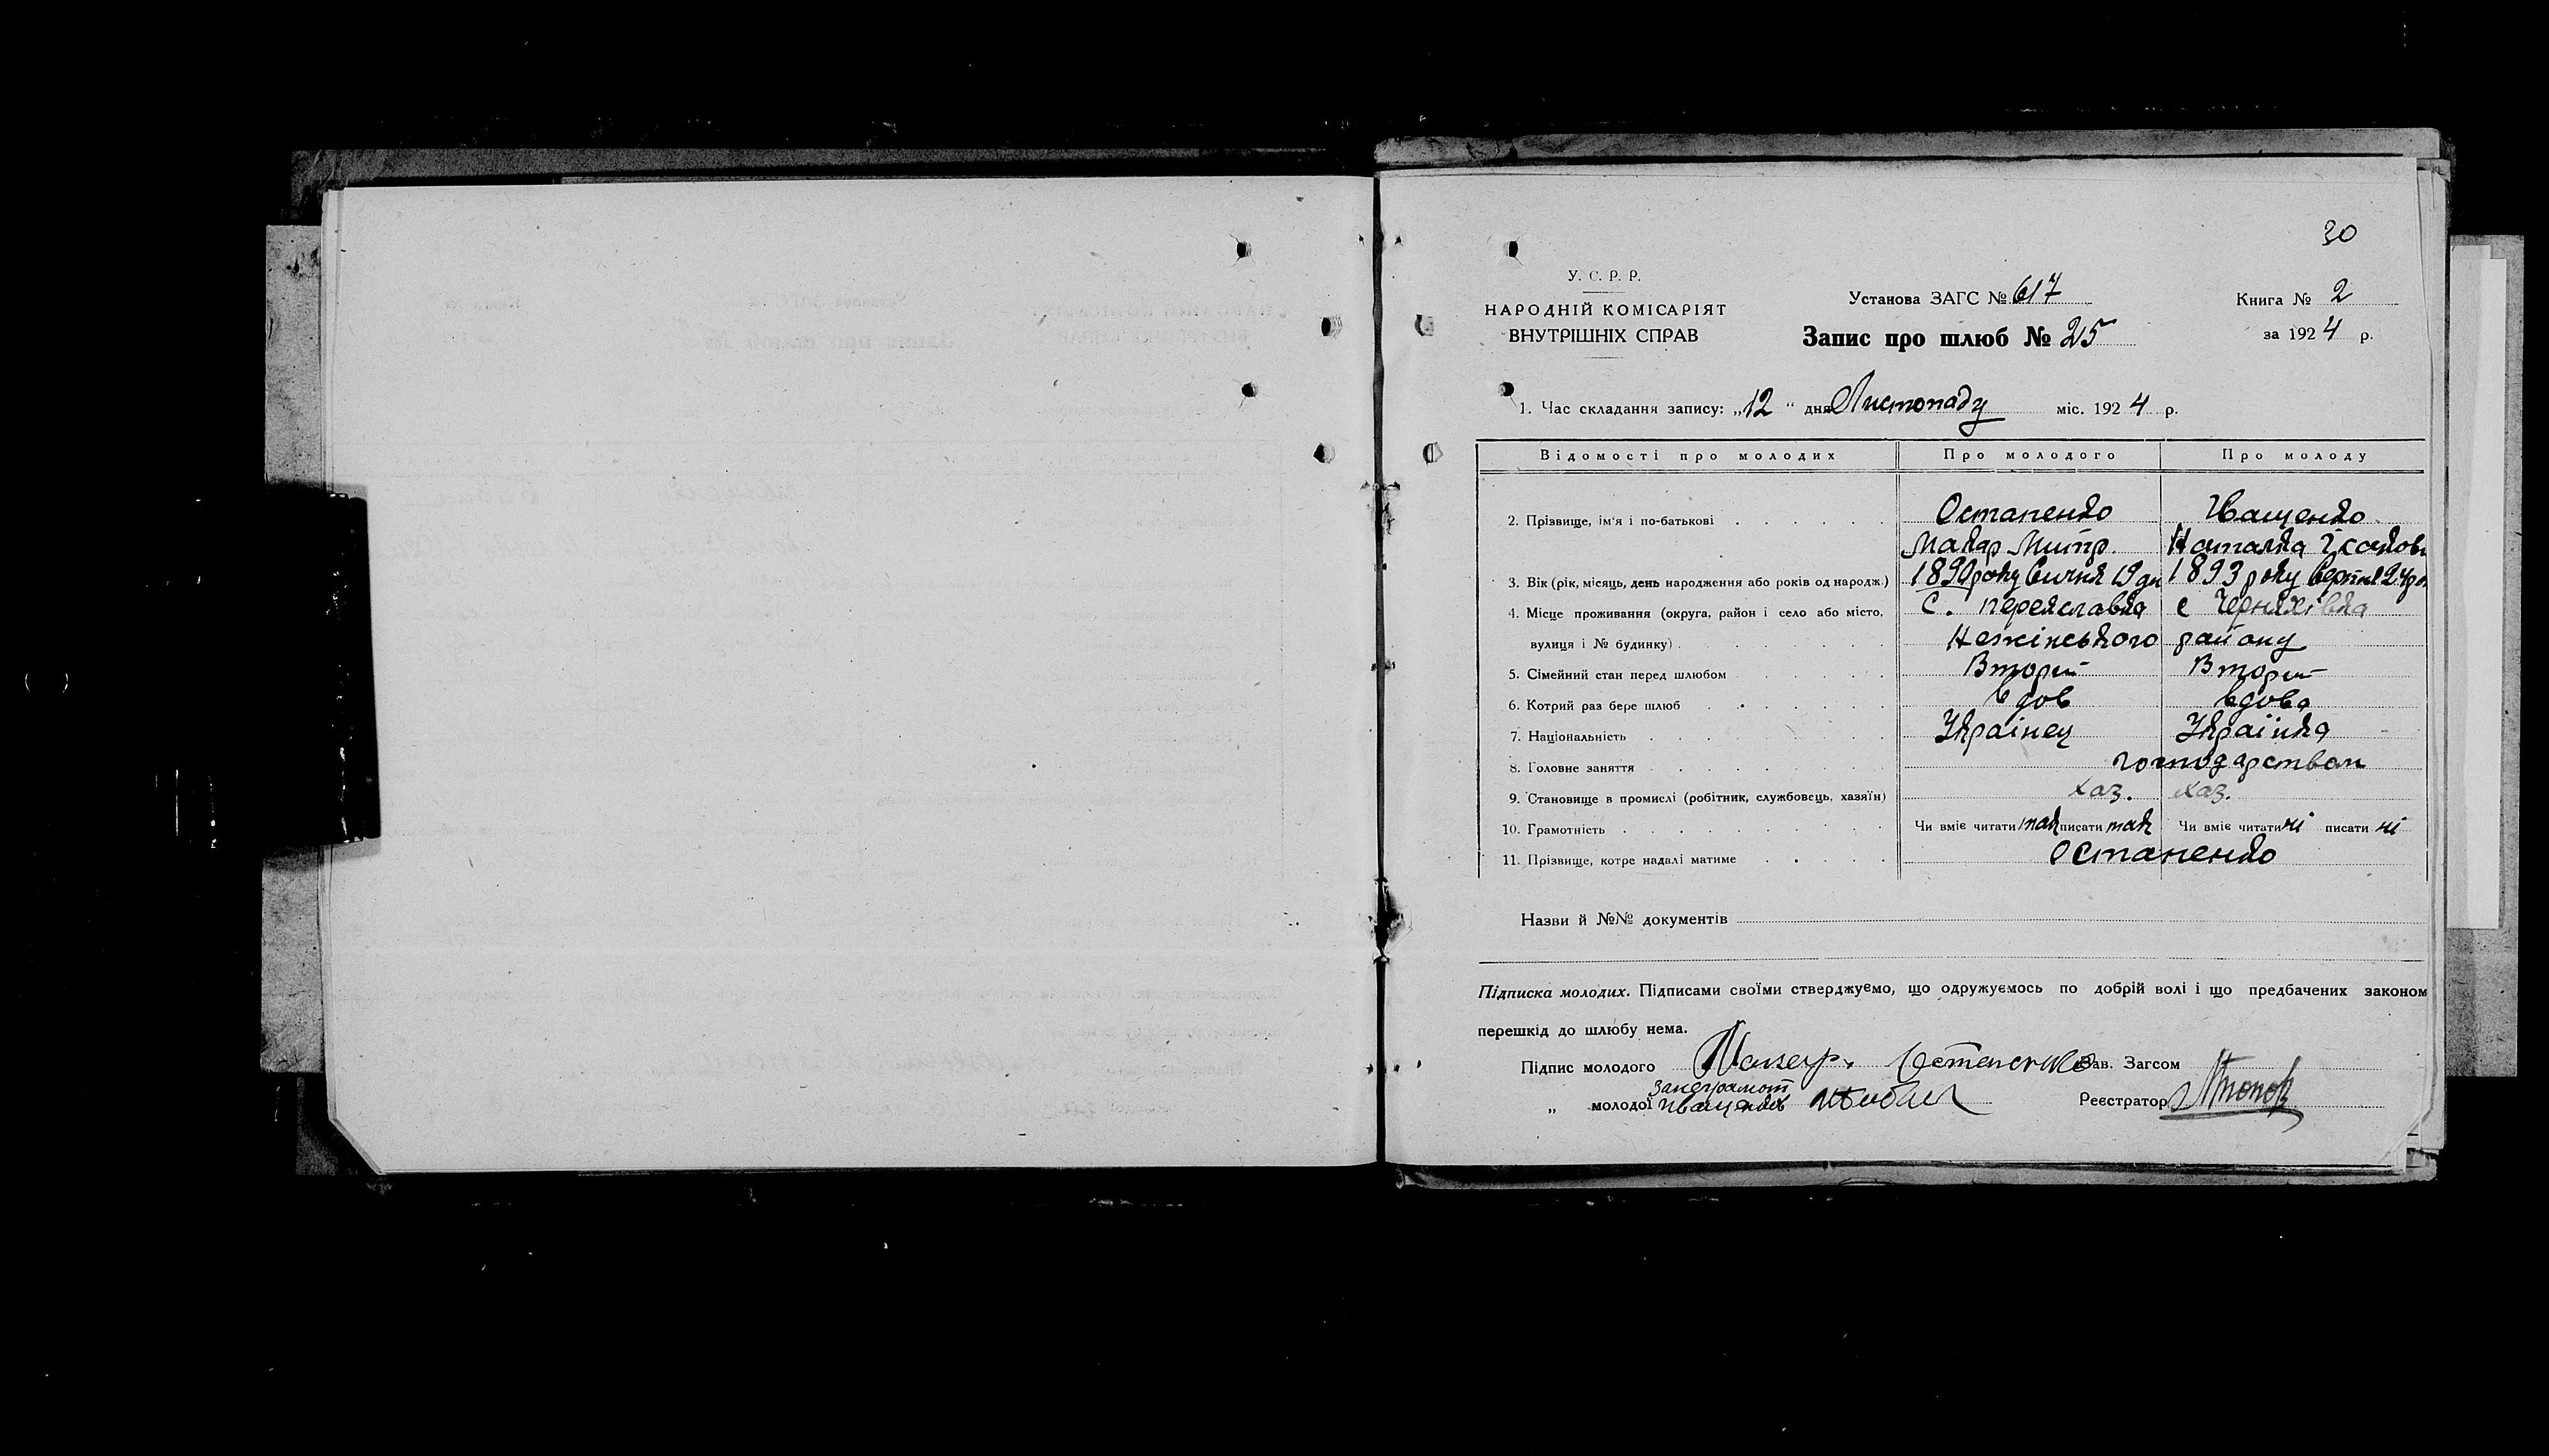 30
У. С. Р. Р.
НАРОДНІЙ КОМІСАРІЯТ
ВНУТРІШНІХ СПРАВ
Установа ЗАГС № 617
Запис про шлюб № 25
Книга № 2
за 1924 р.
1. Час складання запису: „12“ дня Листопаду міс. 1924 р.
Відомості про молодих Про молодого Про молоду
2. Прізвище, ім'я і по-батькові Остапенко Іващенко
Макар Митр. Наталка
3. Вік (рік, місяць, день народження або років од народж.) 1890 року Січня 19 дн 1893 року Серпня 24 дн
4. Місце проживання (округа, район і село або місто, С. Переяславка с Черняхівка
вулиця і № будинку) Нежінського району
5. Сімейний стан перед шлюбом Вторий Вторий
6. Котрий раз бере шлюб вдов вдова
7. Національність Українец Українка
8. Головне заняття господарством
9. Становище в промислі (робітник, службовець, хазяїн) хаз. хаз.
10. Грамотність Чи вміє читати так писати так Чи вміє читати ні писати ні
11. Прізвище, котре надалі матиме Остапенко
Назви й №№ документів
Підписка молодих. Підписами своїми стверджуємо, що одружуємось по добрій волі і що предбачених законом
перешкід до шлюбу нема.
Підпис молодого Макар Остапенко Зав. Загсом
за неграмот
„ молодої Іващенко Реєстратор